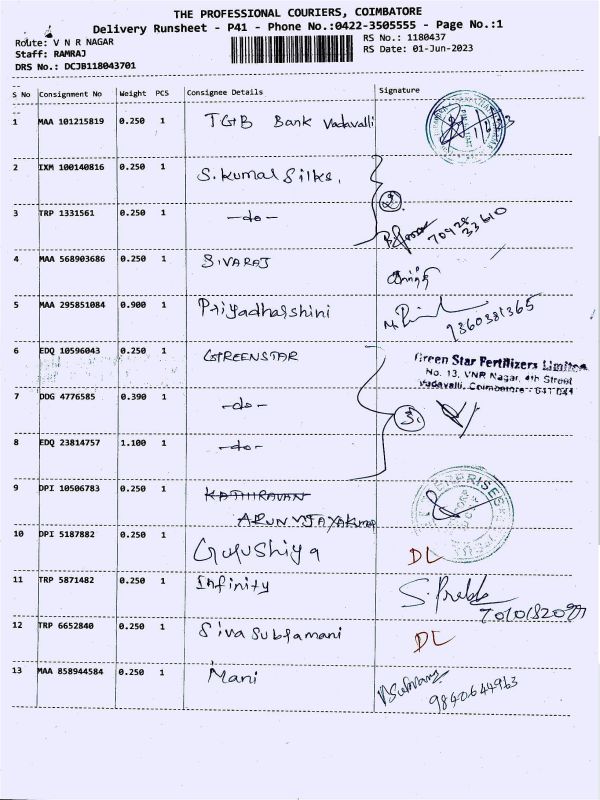 THE PROFESSIONAL COURIERS, COIMBATORE
Delivery Runsheet - P41 - Phone No.:0422-3505555 - Page No.:1
Route: V N R NAGAR
RS No.: 1180437
Staff: RAMRAJ
RS Date: 01-Jun-2023
DRS No.: DCJB118043701
S No Consignment No Weight PCS Consignee Details Signature
1 MAA 101215819 0.250 1 TGB Bank Vadavalli
2 IXM 100140816 0.250 1 S. Kumal Silks.
2
3 TRP 1331561 0.250 1 -do-
70928
33610
4 MAA 568903686 0.250 1 SIVARAJ
5 MAA 295851084 0.900 1 Priyadharshini
9360381365
6 EDQ 10596043 0.250 1 GREENSTAR
Green Star Fertilizers Limited
No. 13, VNR Nagar, 4th Street
Vadavalli, Coimbatore - 641 041
7 DDG 4776585 0.390 1 -do-
3.
8 EDQ 23814757 1.100 1 -do-
9 DPI 10506783 0.250 1 KATHIRAVAN
ARUN VIJAYAKUMAR
10 DPI 5187882 0.250 1 DL
11 TRP 5871482 0.250 1 Infinity S. Prabhu
12 TRP 6652840 0.250 1 Siva Subramani DL
13 MAA 858944584 0.250 1 Mani
9840644963